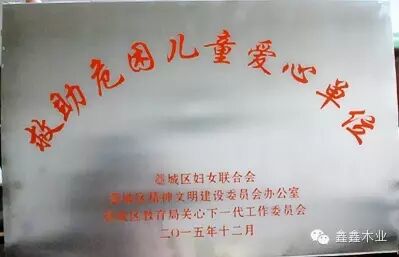 救助危困儿童爱心单位
藁城区妇女联合会
藁城区精神文明建设委员会办公室
藁城区教育局关心下一代工作委员会
二〇一五年十二月
鑫鑫木业